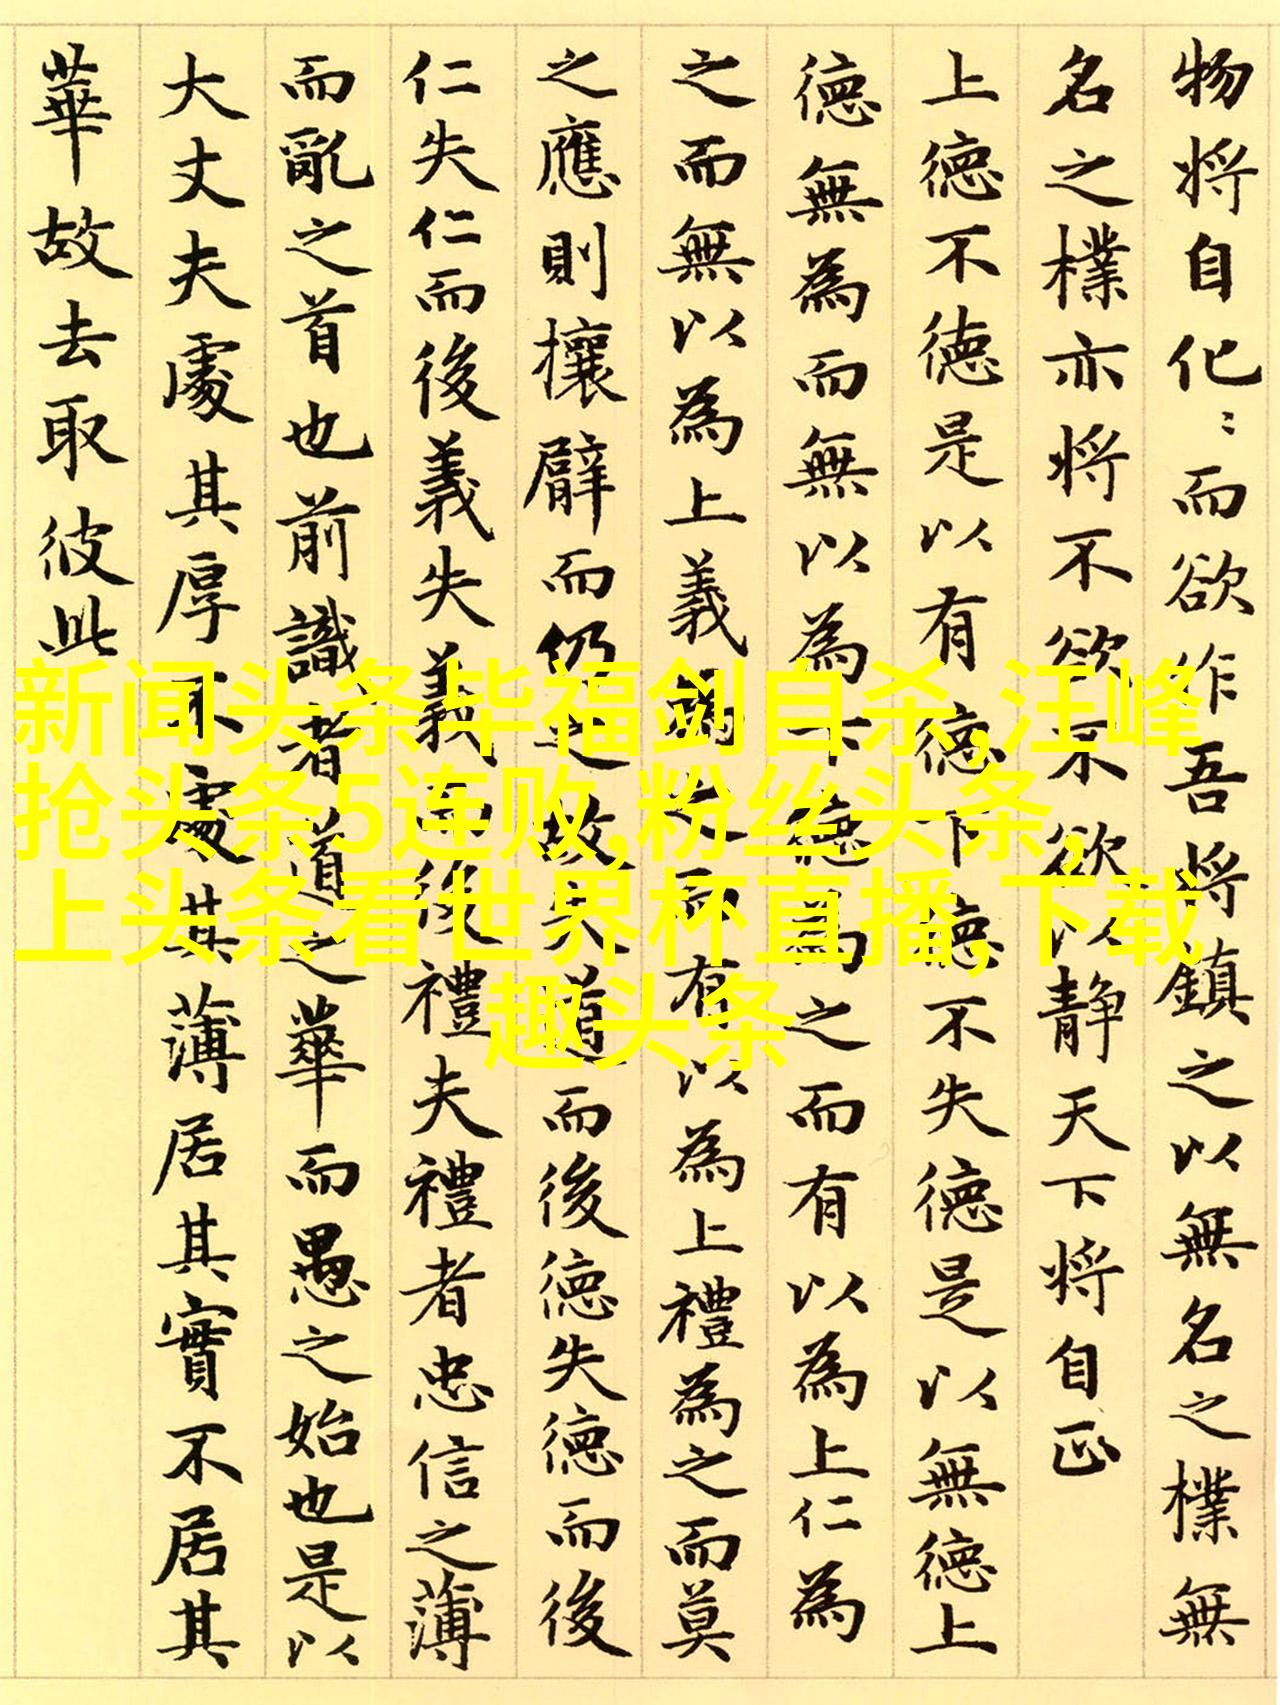 物将自化〻而欲作吾将鎮之以無名之樸無
名之樸亦将不欲不欲以靜天下将自正
上德不德是以有德下德不失德是以無德上
德無為而無以為下德為之而有以為上仁為
之而無以為上義為之而有以為上禮為之而莫
之應則攘臂而仍之故失道而後德失德而後
仁失仁而後義失義而後禮夫禮者忠信之薄
而亂之首也前識者道之華而愚之始也是以
大丈夫處其厚不處其薄居其實不居其
華故去取彼此
新闻头条毕福剑自杀,汪峰
抢头条5连败,粉丝头条,
上头条看世界杯直播,下载
趣头条